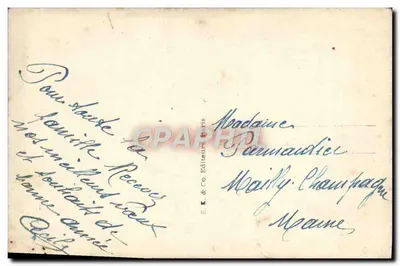 Pour toute la
famille Recevez
nos meilleurs vœux
et souhaits de
bonne année
Madame
Parmantier
Mailly-Champagne
Marne
& Co. Editeurs Paris
CPAPHIL